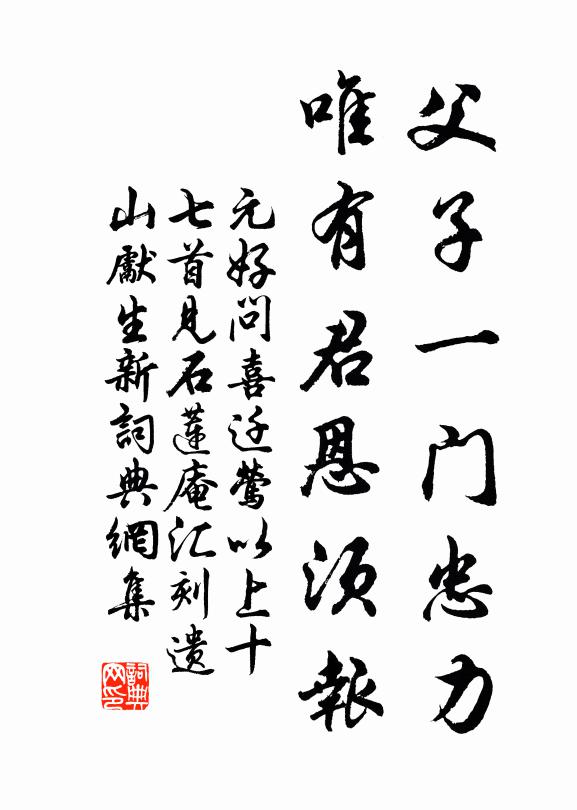 父子一门忠力
唯有君恩须報
元好問喜迁鶯以上十
七首見石蓮庵汇刻遗
山獻生新詞典網集
詞典
网印